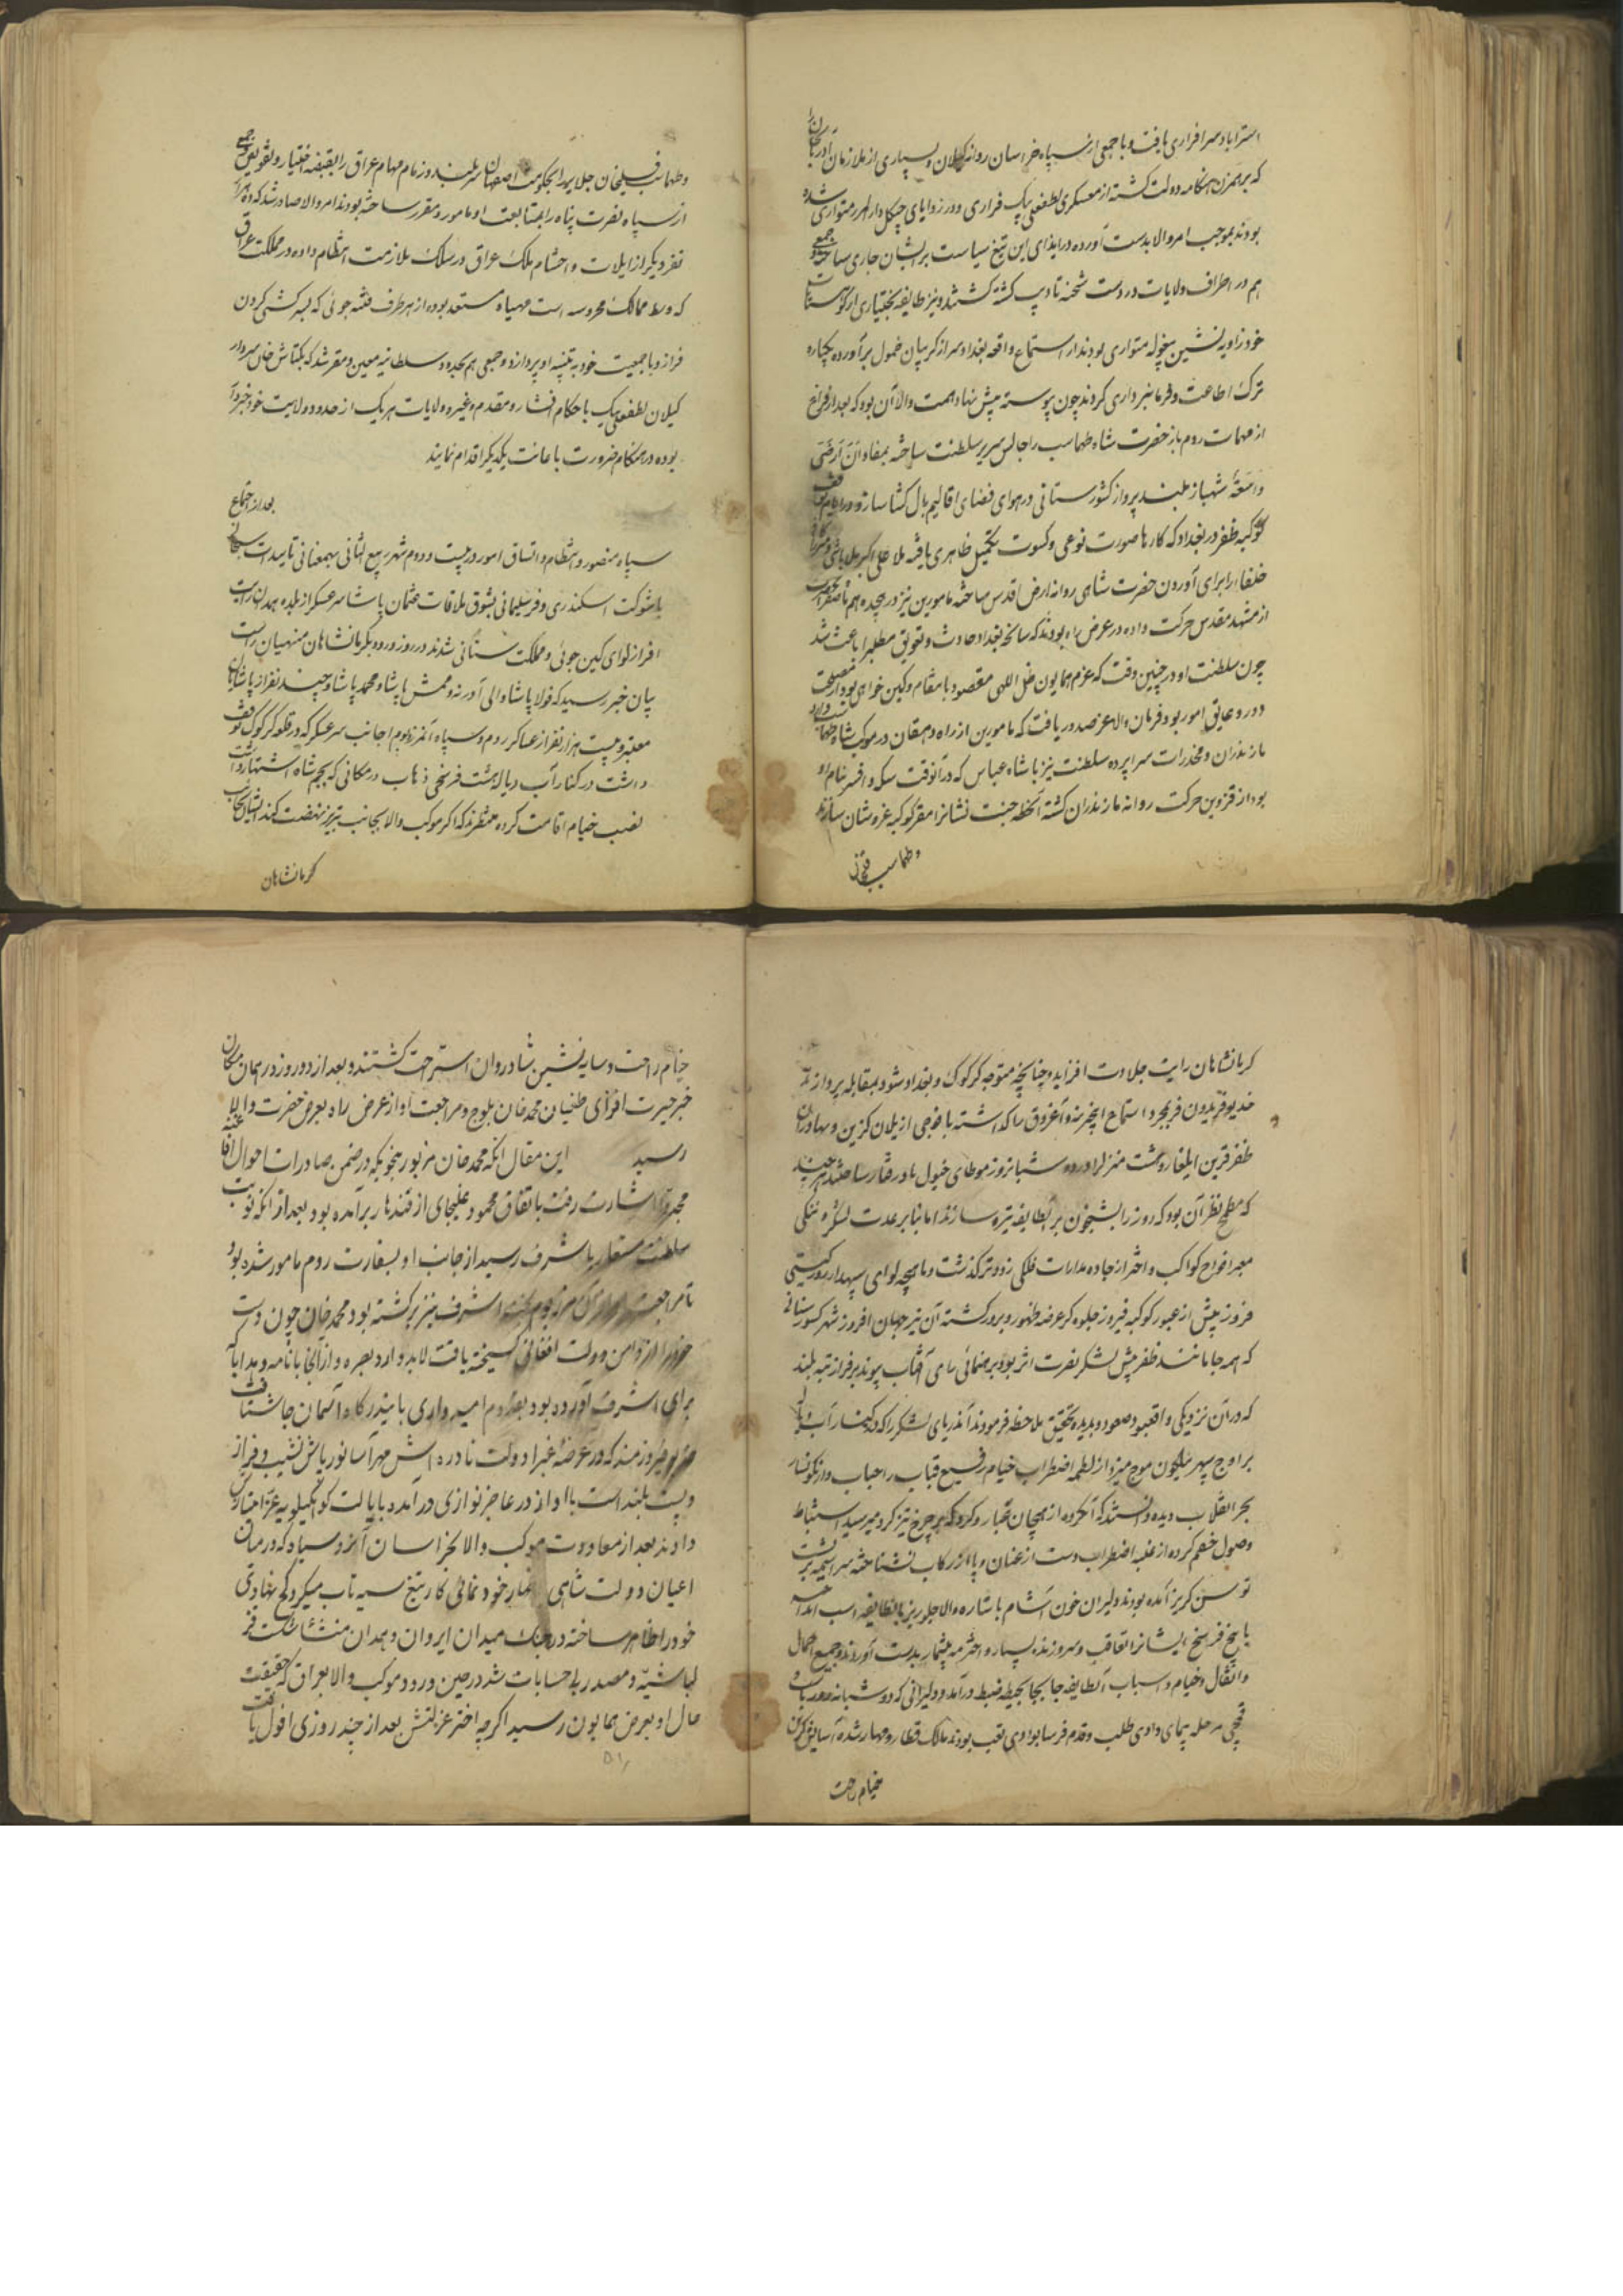 استراباد سرافرازی یافت و با جمعی از سپاه خراسان روانه کیلان و بسیاری از ملازمان آذربایجان را
که برهمزن هنکامه دولت کشته از معسکر لطفعلی بیک فراری و در زوایای جنکل دار المرز متواری شده
بودند بموجب امر والا بدست آورده در ایذای این تیغ سیاست بر ایشان جاری ساخته و جمعی
هم در اطراف ولایات در دست شحنه تادیب کشته کشتند و نیز طایفه بختیاری از کوهستانات
خود زاویه نشین بیغوله متواری بودند از استماع واقعه بغداد سر از کریبان خمول برآورده یکباره
ترک اطاعت و فرمانبرداری کردند چون پیوسته پیش نهاد همت والا آن بود که بعد از فراغ
از مهمات روم باز حضرت شاه طهماسب را جالس سریر سلطنت ساخته بمفاد ان ارضی
واسعة شهباز بلند پرواز کشورستانی در هوای فضای اقالیم بال کشا سازند و در ایام توقف
کوکبه ظفر در بغداد که کارها صورت نوعی و کسوت تکمیل ظاهری یافته ملا علی اکبر ملاباشی و میرزا کافی
خلفا را برای آوردن حضرت شاهی روانه ارض اقدس ساخته مامورین نیز در هجدهم ماه صفر
از مشهد مقدس حرکت داده در عرض راه بودند که سانحه بغداد حادث و تعویق مطلب را باعث شد
چون سلطنت او در چنین وقت که عزم همایون ظل اللهی مقصود بانتقام و کین خواهی بود از مصلحت
دور و عایق امور بود فرمان والا عز صدور یافت که مامورین از راه دامغان در موکب شاه طهماسب وارد
مازندران و مخدرات سراپرده سلطنت نیز با شاه عباس که در آنوقت سکه و افسر بنام او
بود از قزوین حرکت روانه مازندران کشته آنخطه جنت نشانرا مقر کوکبه عز و شان سازند
و طهماسب قلی
و طهماسب قلیخان جلایر را بحکومت اصفهان سربلند و زمام مهام عراق را بقبضه اختیار او تفویض و جمعی
از سپاه نصرت پناه را بمتابعت او مامور و مقرر ساخته بودند امر والا صادر شد که ده هزار
نفر دیکر از ایلات و احشام ملک عراق در سلک ملازمت انتظام داده در مملکت عراق
که وسط ممالک محروسه است مهیا و مستعد بوده از هر طرف فتنه جوئی که بسرکشی کردن
فرازد با جمعیت خود به تنبیه او پردازد و جمعی هم بحدود سلطانیه معین و مقرر شد که بکتاش خان سردار
کیلان لطفعلی بیک با حکام افشار و مقدم و غیره ولایات هریک از حدود ولایت خود خبردار
بوده در هنکام ضرورت باعانت یکدیکر اقدام نمایند
بعد از اجتماع
سپاه منصور و انتظام و اتساق امور در بیست و دوم شهر ربیع الثانی بهمعنانی تاییدات سبحانی
با شوکت اسکندری و فر سلیمانی بشوق ملاقات عثمان پاشا سرعسکر از بلده همدان رایت
افراز لوای کین جوئی و مملکت ستانی شدند در روز ورود بکرمانشاهان منهیان راست
بیان خبر رسید که فولاد پاشا والی آدرنه و ممش پاشا و محمد پاشا و چند نفر از پاشایان
معتبر و بیست هزار نفر از عساکر روم و سپاه آنمرز و بوم از جانب سرعسکر که در قلعه کرکوک توقف
داشت در کنار آب دیاله هشت فرسخی ذهاب در مکانی که بچم شاه اشتهار داشت
نصب خیام اقامت کرده منتظرند که اکر موکب والا بجانب تبریز نهضت کند ایشان بجانب
کرمانشاهان
کرمانشاهان رایت جلادت افرازند و چنانچه متوجه کرکوک و بغداد شود بمقابله پردازند
خدیو فریدون فر بمجرد استماع اینخبر بنه و آغروق را کذاشته با فوجی از یلان کزین و بهادران
ظفر قرین ایلغار و هشت منزل را در دو شبانروز موطای خیول باد رفتار ساختند هر چند
که مطمح نظر آن بود که روز را بشبخون بر آنطایفه تیره سازند اما بنابر عدت لشکر و تنکی
معبر افواج کواکب و اختر از جاده مدارات فلکی زودتر کذشت و ماهچه لوای سپهدار روز کیتی
فروز پیش از عبور کوکبه فیروز جلوه کر عرصه ظهور و بروز کشته آن نیر جهان افروز شهر کشورستانی
که همه جا مانند ظفر پیش لشکر نصرت اثر بود برهنمائی رای آفتاب پیوند بر فراز تپه بلند
که در آن نزدیکی واقع بود صعود و بدیده تحقیق ملاحظه فرمودند آندریای لشکر را که در کنار آب دیاله
بر اوج سپهر نیلکون موج میزد از لطمه اضطراب خیام رفیع قباب را حباب وار نکونسار
بحر انقلاب دیده دانستند که آنکروه از هیجان غبار و کرد که بر چرخ تیز کرد میرسید استنباط
وصول خصم کرده از غلبه اضطراب دست از عنان و پا از رکاب نشناخته سراسیمه بر پشت
توسن کریز آمده بودند دلیران خون آشام باشاره والا جلوریز بانطایفه اسب انداخته
تا پنج فرسخ ایشانرا تعاقب و سر و زنده بسیار و اخترمه بیشمار بدست آوردند و جمیع احمال
و اثقال و خیام و اسباب آنطایفه جابجا بحیطه ضبط درآمد و دلیرانی که دو شبانه روز با
قمچی مرحله پیمای وادی طلب و قدم فرسا بوادی تعب بودند مالک قطار و مهار شده آسایش کزین
خیام راحت
خیام راحت و سایه نشین شادروان استراحت کشتند و بعد از دو روز در همان مکان
خبر حیرت افزای طغیان محمد خان بلوچ و مراجعت او از عرض راه بعرض حضرت والا
رسید این مقال آنکه محمد خان مزبور بنحویکه در ضمن صادرات احوال افاغنه
مجددا اشارت رفت باتفاق محمود غلیجای از قندهار برآمده بود بعد از آنکه نوبت
سلطنت مستعار باشرف رسید از جانب او بسفارت روم مامور شده بود
تا مراجعت او از آن مرز و بوم بخت اشرف نیز برکشته بود محمد خان چون دست
خود را از دامن دولت افغانی کسیخته یافت لابد وارد بصره و از آنجا با نامه و هدایا که
برای اشرف آورده بود بقدم امیدواری باین درکاه آسمان جاه شتافت
خدیو فیروزمند که در عرصه غبرا دولت نادره اش مهر آسا نور پاش نشیب و فراز
و پست بلند است با او از در عاجز نوازی درآمده بایالت کوه کیلویه عز امتیاز
دادند بعد از معاودت موکب والا بخراسان آنرو سیاه که در میان
اعیان دولت شاهی اظهار خود نمائی کار تیغ سیه تاب میکرد کج نهادی
خود را ظاهر ساخته در جنک میدان ایروان و همدان منشاء شکست قز
لباشیه و مصدر بیحسابات شد در حین ورود موکب والا بعراق که حقیقت
حال او بعرض همایون رسید اکرچه اختر عزتش بعد از چند روزی افول یافت
۵۱